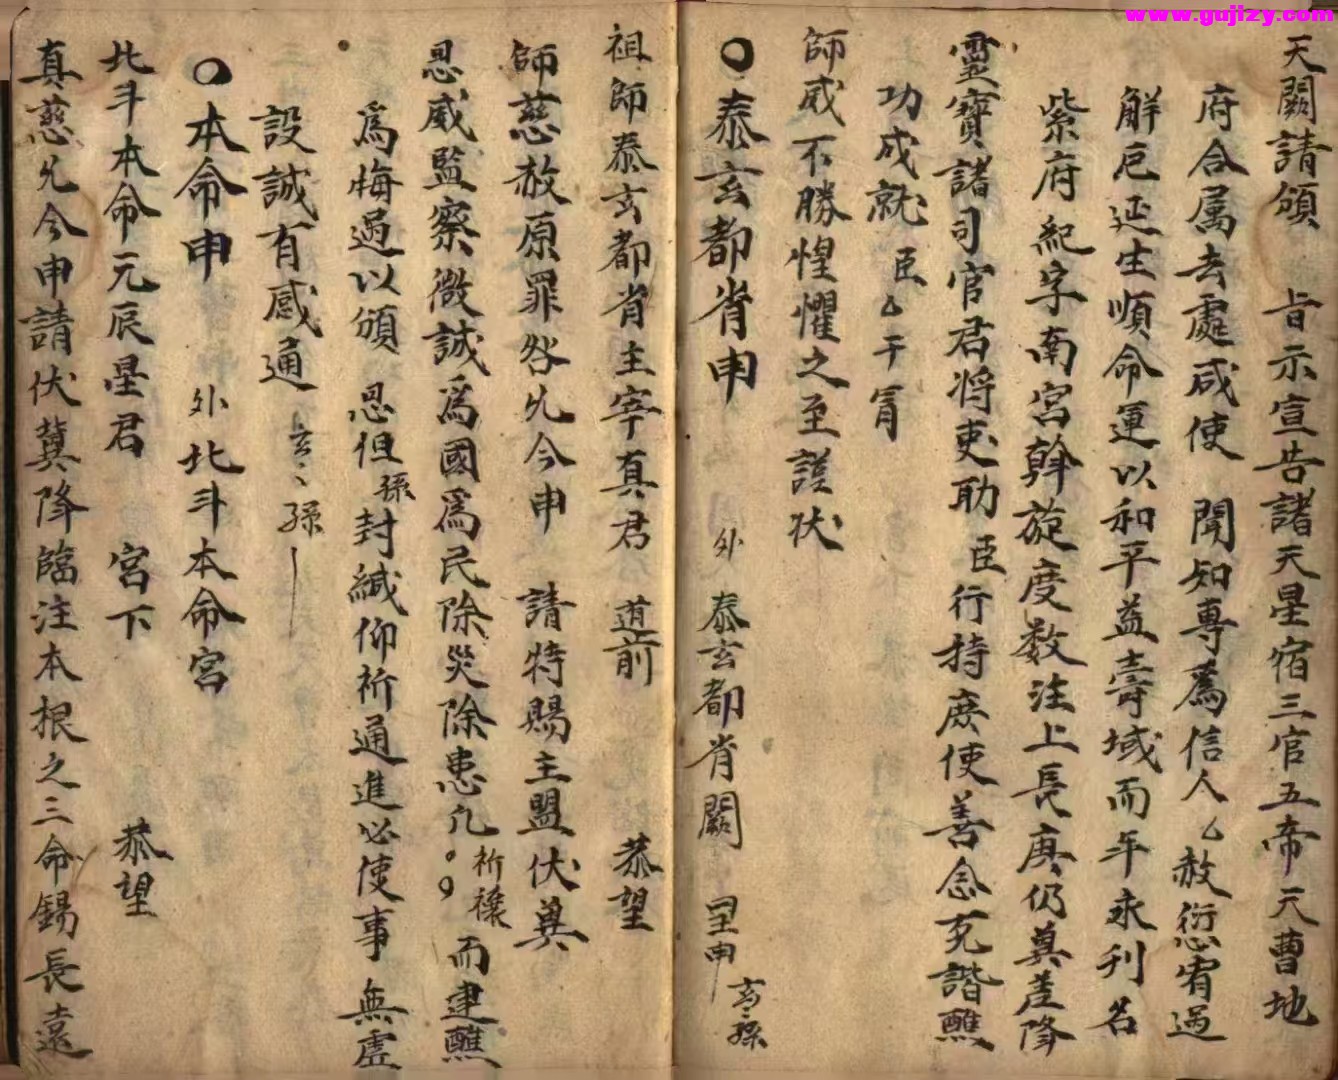 www.gujizy.com
天闕請頒 旨示宣告諸天星宿三官五帝天曹地
府合属去處咸使 聞知專為信人厶赦愆宥過
解厄延生順命運以和平益壽域而年永刋名
紫府紀字南宮斡旋度数注上長庚仍兾差降
靈寶諸司官君将吏助臣行持庶使善念克諧醮
功成就 臣厶干冐
師威不勝惶懼之至謹状
○泰玄都省申 外 泰玄都省闕 呈申 玄玄孫
祖師泰玄都省主宰真君 道前 恭望
師慈赦原罪咎允今申 請特賜主盟伏兾
恩威監察微誠為國為民除災除患凢。。祈禳而建醮
為悔過以頒 恩但孫封緘仰祈通進必使事無虛
設誠有感通 玄玄孫
○本命申 外北斗本命宮
北斗本命元辰星君 宮下 恭望
真慈允今申請伏冀降臨注本根之三命錫長遠